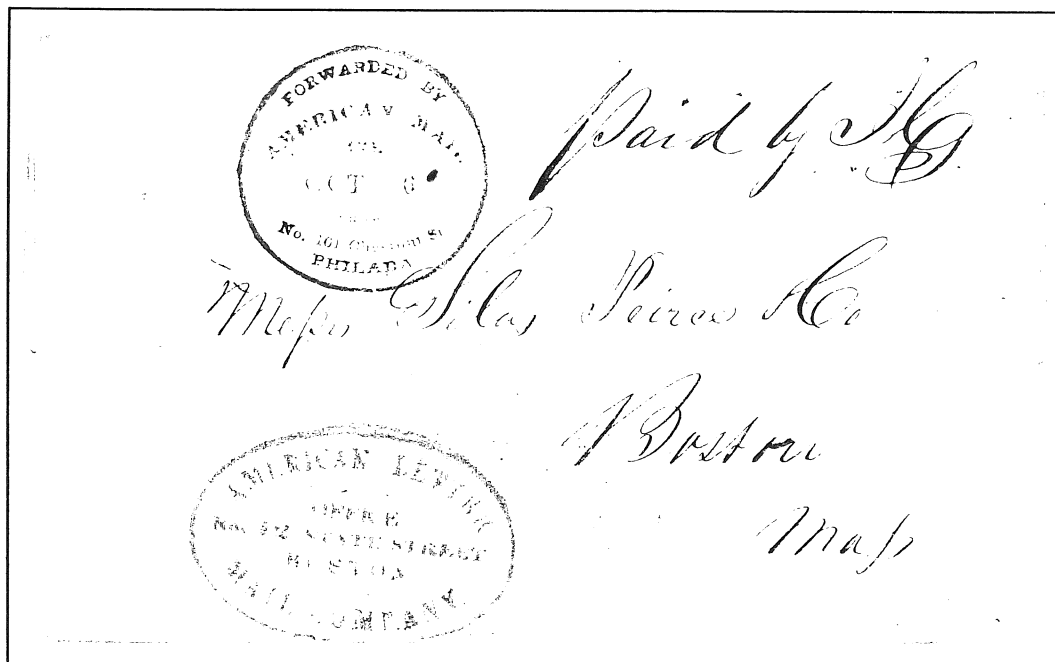 FORWARDED BY
AMERICAN MAIL
CO.
OCT 6
FROM
No. 101 Chesnut St
PHILADA
Paid by
Messrs Silas Peirce & Co
Boston
Mass
AMERICAN LETTER
OFFICE
No. STATE STREET
BOSTON
MAIL COMPANY